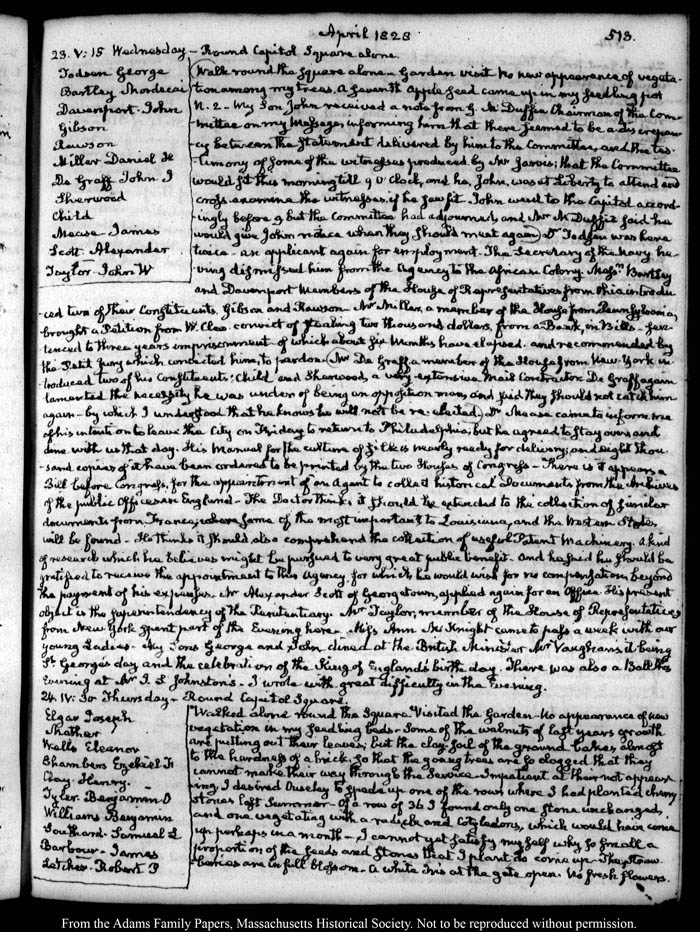 April 1828
513.
23. V: 15 Wednesday - Round Capitol Square alone.
Todsen George
Bartley Mordecai
Davenport. John
Gibson
Rawson
Miller Daniel H
De Graff John I
Sherwood
Child
Mease - James
Scott. Alexander
Taylor - John W
Walk round the Square alone - Garden visit. No new appearance of vegeta-
tion among my trees. A seventh apple seed came up in my seedling pot
N. 2 - My Son John received a note from G. McDuffie Chairman of the Com-
mittee on my Message, informing him that there seemed to be a discrepan-
cy between the Statement delivered by him to the Committee, and the tes-
timony of some of the witnesses produced by Mr Jarvis; that the Committee
would sit this morning till 9 O'Clock, and he, John, was at liberty to attend and
cross examine the witnesses, if he saw fit. John went to the Capitol accord-
ingly before 9 but the Committee had adjourned, and Mr McDuffie said he
would give John notice when they should meet again. Dr Todsen was here
twice - an applicant again for employment. The Secretary of the Navy ha-
ving dismissed him from the Agency to the African Colony. Messrs Bartley
and Davenport Members of the House of Representatives from Ohio introdu-
ced two of their Constituents, Gibson and Rawson. Mr Miller, a member of the House from Pennsylvania,
brought a Petition from W. Clew convict of stealing two thousand dollars, from a Bank, in Bills - Sen-
tenced to three years imprisonment - of which about six Months have elapsed. and recommended by
the Petit Jury which convicted him, to pardon. Mr De Graff a member of the House from New-York in-
troduced two of his Constituents; Child and Sherwood, a very extensive Mail Contractor. De Graff again
lamented the necessity he was under of being an opposition man, and said they should not catch him
again - by which I understood that he knows he will not be re-elected. Dr Mease came to inform me
of his intention to leave the City on Friday to return to Philadelphia; but he agreed to stay over and
dine with us that day. His Manual for the culture of silk is nearly ready for delivery; and eight thou-
-sand copies of it have been ordered to be printed by the two Houses of Congress - There is it appears a
Bill before Congress, for the appointment of an Agent to collect historical Documents from the Archives
of the public Offices in England - The Doctor thinks it should be extended to the collection of similar
documents from France, where some of the most important to Louisiana, and the Western States,
will be found - He thinks it should also comprehend the collection of useful Patent Machinery. A kind
of research which he believes might be pursued to very great public benefit. And he said he should be
gratified to receive the appointment to this Agency, for which he would wish for no compensation beyond
the payment of his expenses. Mr Alexander Scott of Georgetown, applied again for an Office. His present
object is the Superintendency of the Penitentiary. Mr Taylor, member of the House of Representatives
from New York spent part of the Evening here. Miss Ann McKnight came to pass a week with our
young Ladies. My Sons George and John dined at the British Minister Mr Vaughan's it being
St. George's day, and the celebration of the King of England's birth day. There was also a Ball this
Evening at Mr J. S Johnston's - I wrote with great difficulty in the Evening.
24. IV: 30 Thursday - Round Capitol Square.
Elgar Joseph
Mather
Walls Eleanor
Chambers Ezekiel F
Clay - Henry.
Tyler. Benjamin O
Williams Benjamin
Southard - Samuel L
Barbour - James
Letcher - Robert P
Walked alone round the Square. Visited the Garden - No appearance of new
vegetation in my seedling beds - Some of the walnuts of last years growth
are putting out their leaves, but the clay-soil of the ground bakes almost
to the hardness of a brick, so that the young trees are so clogged that they
cannot make their way through the Surface - Impatient at their not appear-
ing, I desired Ouseley to spade up one of the rows where I had planted cherry
stones last Summer - Of a row of 36 I found only one stone unchanged,
and one vegetating with a radicle and Cotyledons, which would have come
up perhaps in a month - I cannot yet satisfy myself why so small a
proportion of the seeds and stones that I plant do come up - The straw-
berries are in full blossom - A white Iris at the gate open. No fresh flowers.
From the Adams Family Papers, Massachusetts Historical Society. Not to be reproduced without permission.